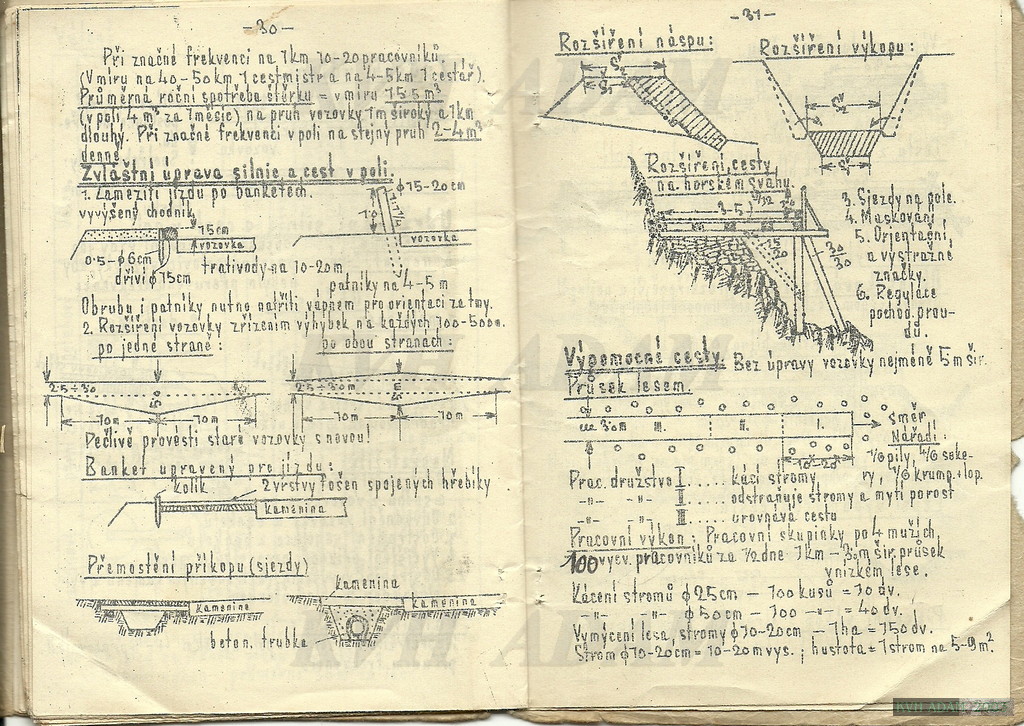 -30-
Při značné frekvenci na 1km 10-20 pracovníků.
(V míru na 40-50km 1 cestmistr a na 4-5km 1 cestář).
Průměrná roční spotřeba štěrku = v míru 155 m³
(v poli 4 m³ za 1 měsíc) na pruh vozovky 1m široký a 1km
dlouhý. Při značné frekvenci v poli na stejný pruh 2-4 m³
denně.
Zvláštní úprava silnic a cest v poli.
1. Zameziti jízdu po banketech.
vyvýšený chodník
15cm
vozovka
0·5-ϕ6cm
dříví ϕ15cm
trativody na 10-20m
ϕ15-20cm
1·0
vozovka
patníky na 4-5 m
Obrubu i patníky nutno natříti vápnem pro orientaci za tmy.
2. Rozšíření vozovky zřízením výhybek na každých 100-500m.
po jedné straně:
po obou stranách:
2·5÷3·0
10m
10m
2·5÷3·0m
10m
10m
Pečlivě provésti staré vozovky s novou!
Banket upravený pro jízdu:
kolík
2 vrstvy fošen spojených hřebíky
kamenina
Přemostění příkopu (sjezdy)
kamenina
kamenina
kamenina
beton. trubka
-31-
Rozšíření náspu:
Rozšíření výkopu:
Rozšíření cesty
na horském svahu.
3-5
30/30
3. Sjezdy na pole.
4. Maskování
5. Orientační
a výstražné
značky.
6. Regulace
pochod. prou-
dů.
Výpomocné cesty. Bez úpravy vozovky nejméně 5m šir.
Průsek lesem.
3·0m
III.
II.
I.
10-20
směr
Nářadí:
1/6 pily, 4/6 seke-
ry, 1/6 krump. i lop.
Prac. družstvo I...... kácí stromy
-"- -"- II..... odstraňuje stromy a mýtí porost
-"- -"- III..... urovnává cestu
Pracovní výkon: Pracovní skupinky po 4 mužích
100 vycv. pracovníků za 1/2 dne 1km - 3·0m šir. průsek
v nízkém lese.
Kácení stromů ϕ 25cm - 100 kusů = 10 dv.
-"- -"- ϕ 50cm - 100 -"- = 40 dv.
Vymýcení lesa, stromy ϕ 10-20cm - 1ha = 150 dv.
Strom ϕ 10-20cm = 10-20m vys.; hustota = 1 strom na 5-9 m²